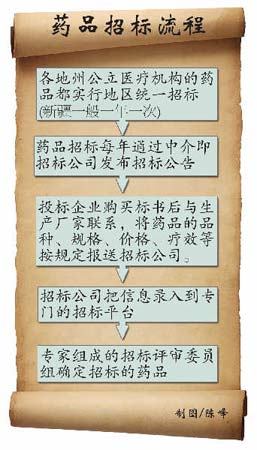 药品招标流程
各地州公立医疗机构的药
品都实行地区统一招标
(新疆一般一年一次)
药品招标每年通过中介即
招标公司发布招标公告
投标企业购买标书后与生
产厂家联系，将药品的品
种、规格、价格、疗效等
按规定报送招标公司。
招标公司把信息录入到专
门的招标平台
专家组成的招标评审委员
组确定招标的药品
制图/陈峰